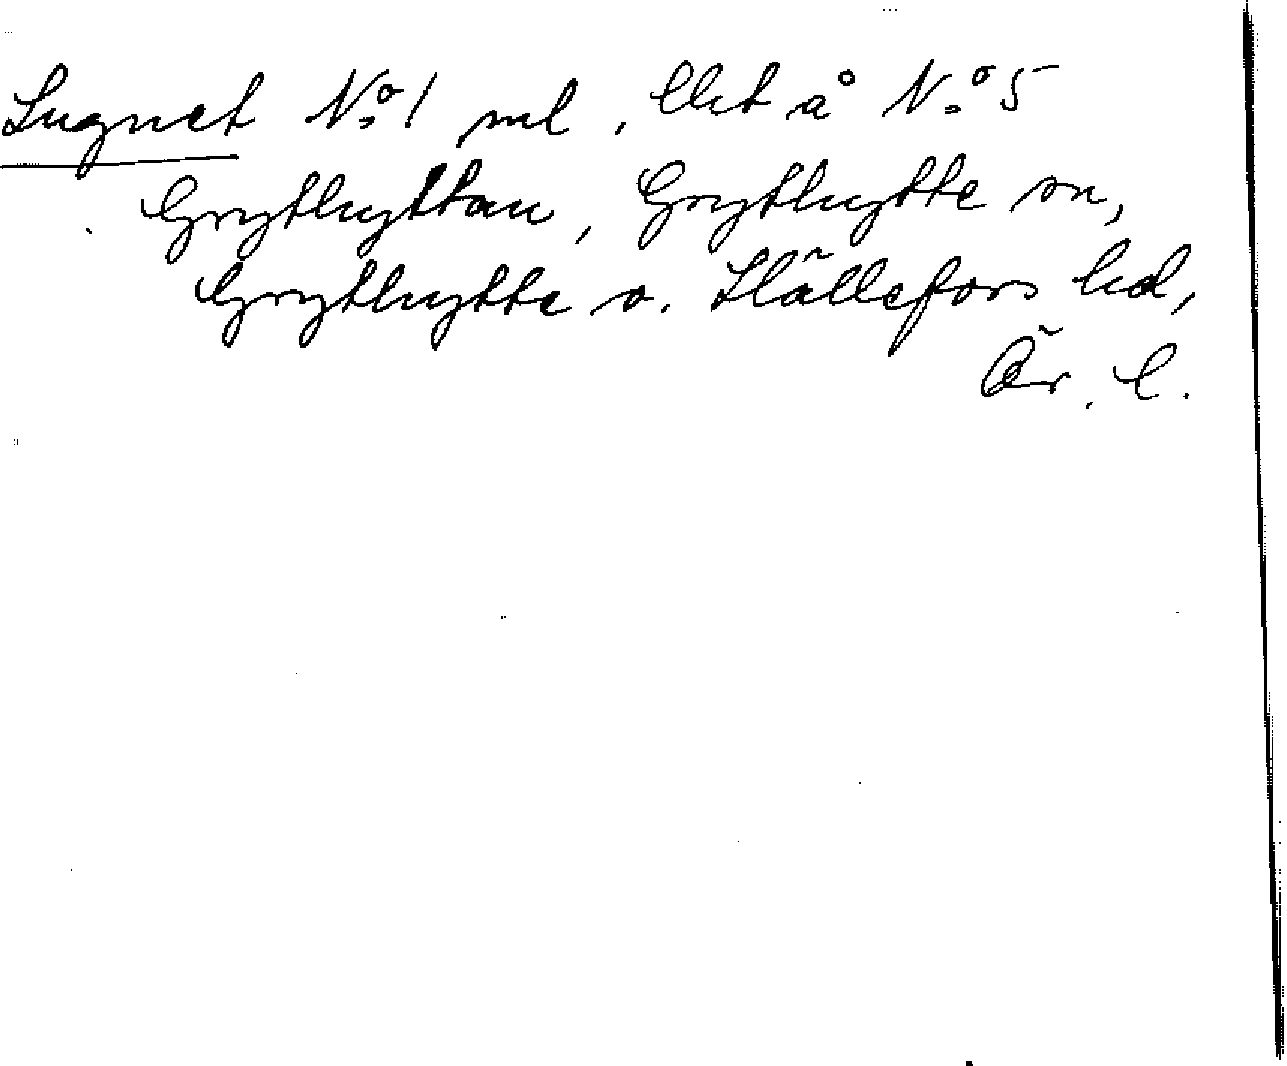 Lugnet No 1 ml, lht å No 5
Grythyttan, Grythytte sn,
Grythytte o. Hällefors hd,
Ör. l.